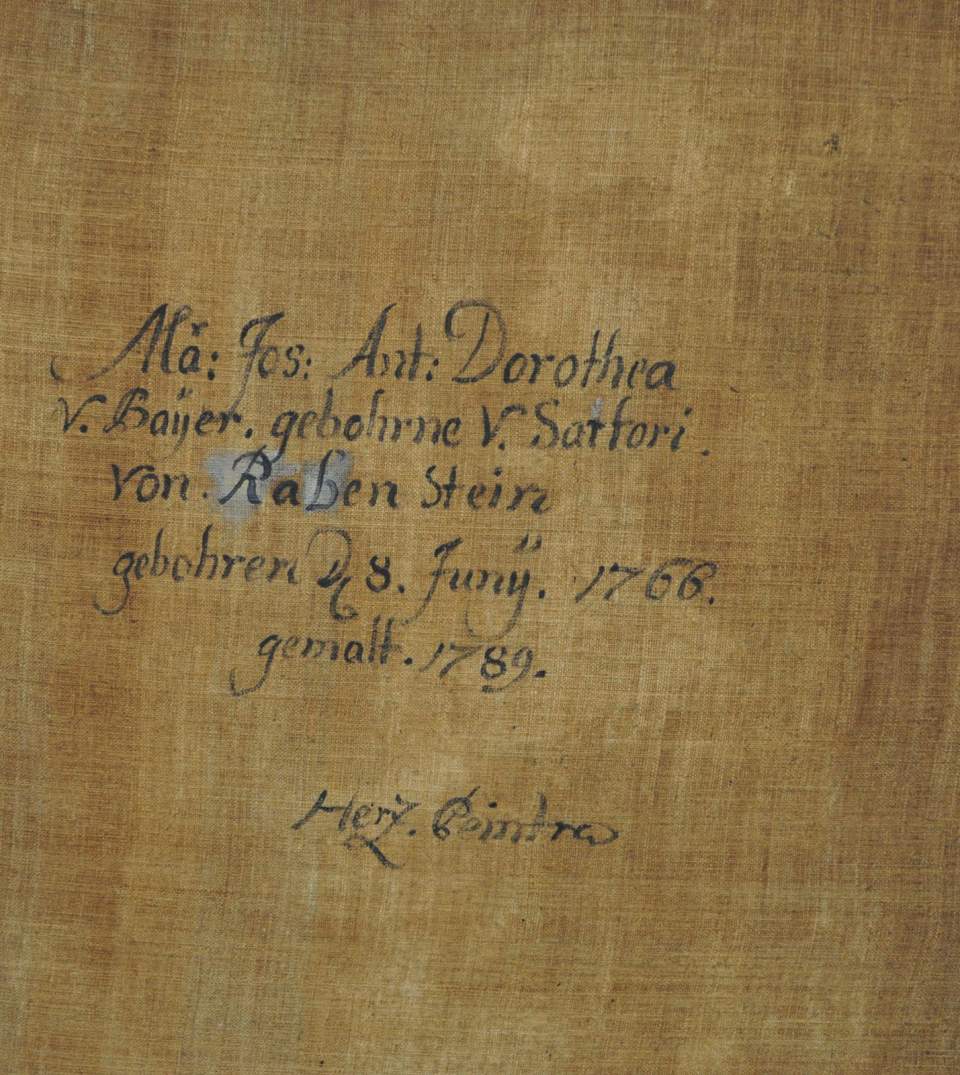 Mã: Jos: Ant: Dorothea
V. Baÿer. gebohrne V. Sartori.
von. Raben Stein
gebohren 8. Junÿ. 1766.
gemalt. 1789.
Herz. Peintre